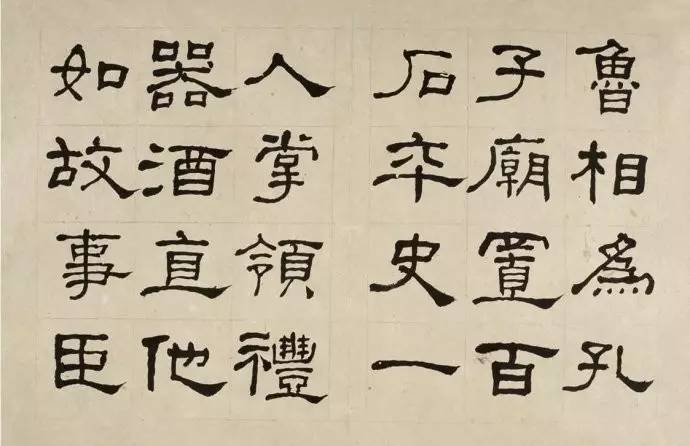 魯相爲孔
子廟置百
石卒史一
人掌領禮
器酒直他
如故事臣